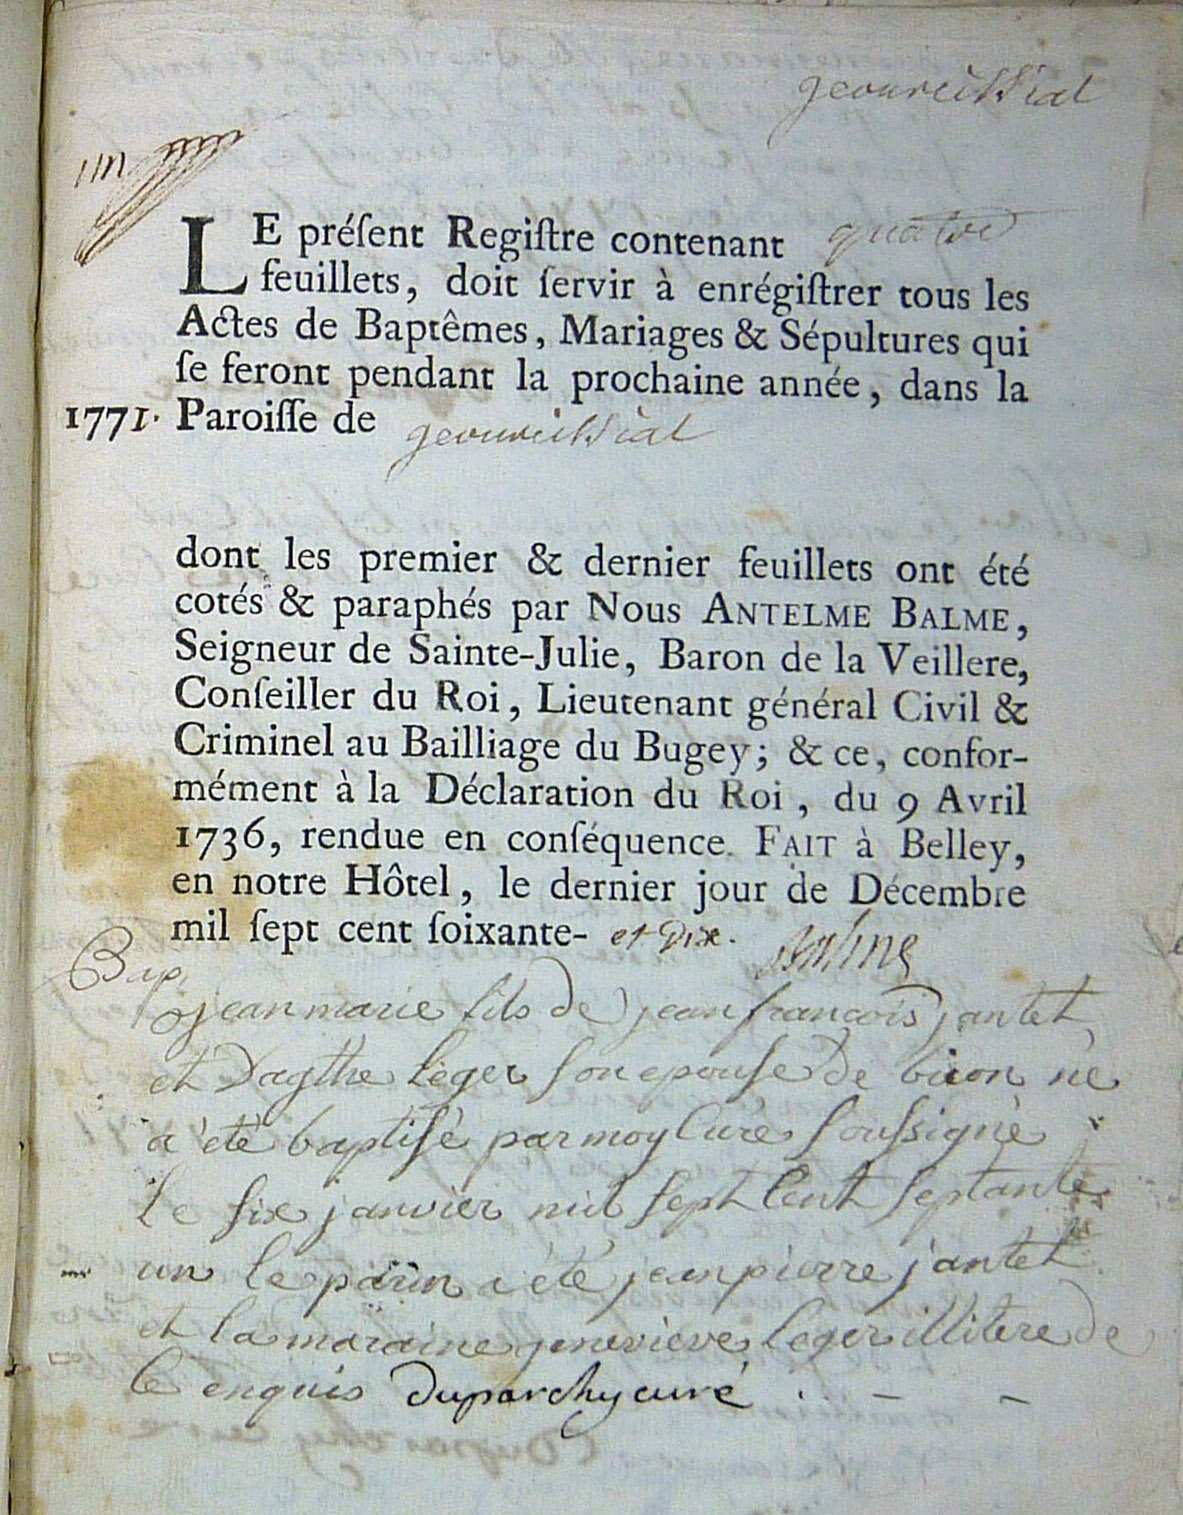 geovreissiat
LE préſent Regiſtre contenant quatre
feuillets, doit ſervir à enrégiſtrer tous les
Actes de Baptêmes, Mariages & Sépultures qui
ſe feront pendant la prochaine année, dans la
1771. Paroiſſe de geovreissiat
dont les premier & dernier feuillets ont été
cotés & paraphés par Nous ANTELME BALME,
Seigneur de Sainte-Julie, Baron de la Veillere,
Conſeiller du Roi, Lieutenant général Civil &
Criminel au Bailliage du Bugey; & ce, confor-
mément à la Déclaration du Roi, du 9 Avril
1736, rendue en conſéquence. FAIT à Belley,
en notre Hôtel, le dernier jour de Décembre
mil ſept cent ſoixante- et Dix. Balme
Bap.
jean marie fils de jean francois jantet
et D'agthe leger son epouse de né
a été baptisé par moy Curé soussigné
le six janvier mil sept Cent septante
un le a été jean pierre jantet
et la maraine genevieve leger illitere de
ce enquis Duparchy curé